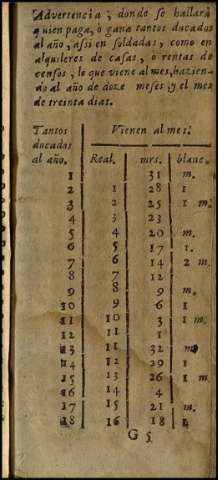 Advertencia, donde se hallarà
quien paga, ò gana tantos ducados
al año, assi en soldadas, como en
alquileres de casas, ò rentas de
censos, lo que viene al mes, hazien
do al año de doze meses, y el mes
de treinta dias.
Tantos Vienen al mes.
ducados
al año. Real. mrs. blanc.
1 31 m.
2 1 28 1
3 2 25 1 m.
4 3 23
5 4 20 m.
6 5 17 1.
7 6 14 2 m.
8 7 12
9 8 9 m.
10 9 6 1
11 10 3 1 m.
12 11 1
13 11 32 m
14 12 29 1
15 13 26 1 m
16 14 4
17 15 21 m.
18 16 18 1
G 5.